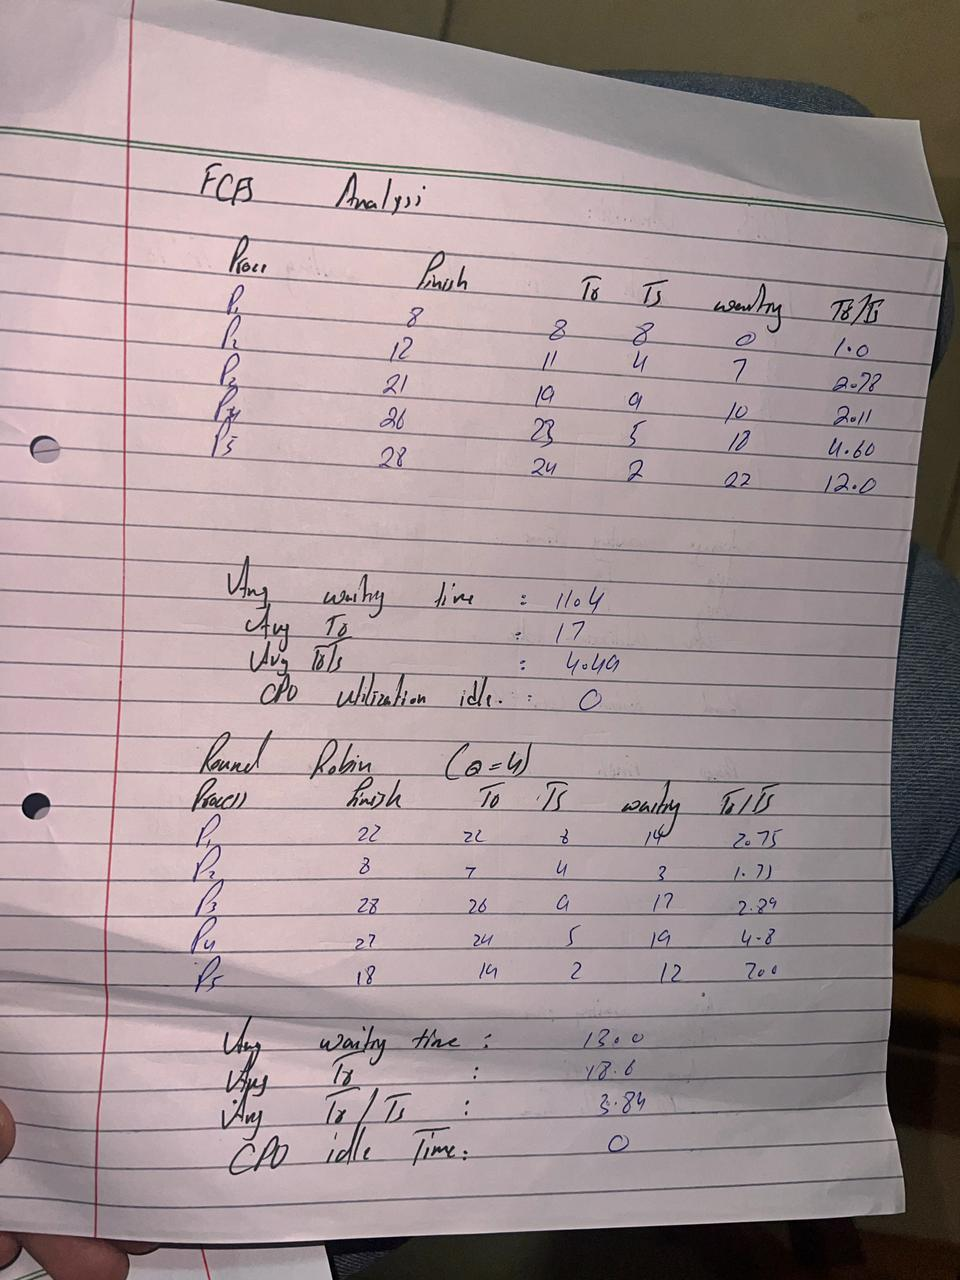 FCFS Analysis
Process Finish Tr Ts waiting Tr/Ts
P1 8 8 8 0 1.0
P2 12 11 4 7 2.78
P3 21 19 9 10 2.11
P4 26 23 5 18 4.60
P5 28 24 2 22 12.0
Avg waiting time : 11.4
Avg Tr : 17
Avg Tr/Ts : 4.49
CPU utilization idle. : 0
Round Robin (Q=4)
Process Finish Tr Ts waiting Tr/Ts
P1 22 22 8 14 2.75
P2 8 7 4 3 1.75
P3 28 26 9 17 2.89
P4 27 24 5 19 4.8
P5 18 14 2 12 7.00
Avg waiting time : 13.0
Avg Tr : 18.6
Avg Tr/Ts : 3.84
CPU idle Time: 0